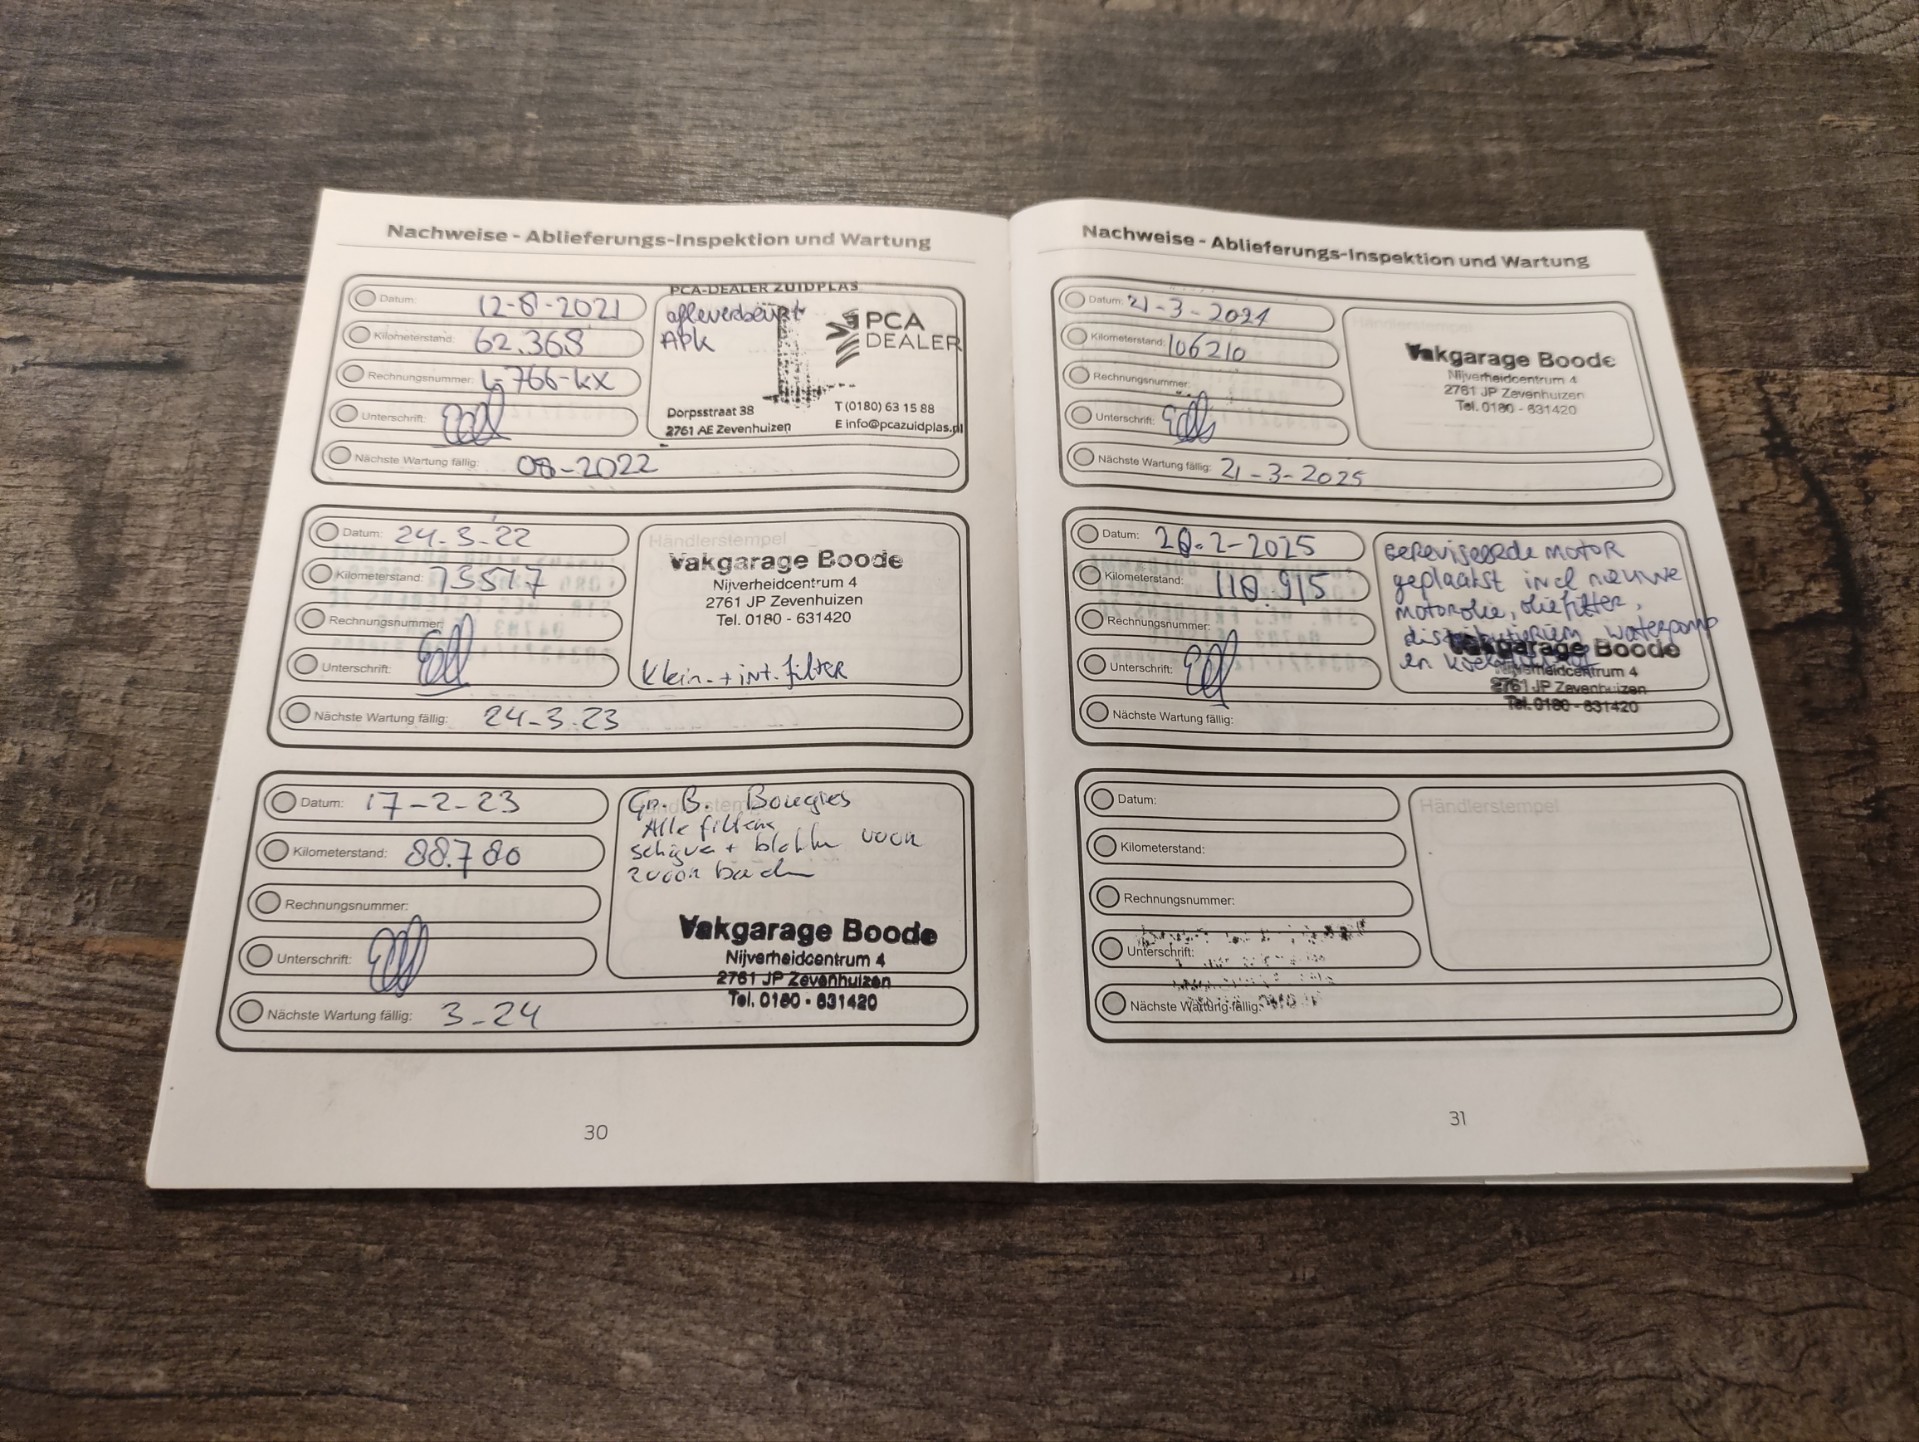 Nachweise - Ablieferungs-Inspektion und Wartung
Datum: 12-8-2021
Kilometerstand: 62.368
Rechnungsnummer: L-766-kx
Unterschrift:
Nächste Wartung fällig: 08-2022
PCA-DEALER ZUIDPLAS
afleverbeurt
APK
PCA
DEALER
Dorpsstraat 38
2761 AE Zevenhuizen
T (0180) 63 15 88
E info@pcazuidplas.nl
Datum: 24-3-22
Kilometerstand: 73517
Rechnungsnummer:
Unterschrift:
Nächste Wartung fällig: 24-3-23
Händlerstempel
Vakgarage Boode
Nijverheidcentrum 4
2761 JP Zevenhuizen
Tel. 0180 - 631420
Klein + int. filter
Datum: 17-2-23
Kilometerstand: 88.780
Rechnungsnummer:
Unterschrift:
Nächste Wartung fällig: 3-24
Gr. B. Bougies
Alle filters
schijven + blokken voor
Vakgarage Boode
Nijverheidcentrum 4
2761 JP Zevenhuizen
Tel. 0180 - 631420
30
Nachweise - Ablieferungs-Inspektion und Wartung
Datum: 21-3-2024
Kilometerstand: 106210
Rechnungsnummer:
Unterschrift:
Nächste Wartung fällig: 21-3-2025
Händlerstempel
Vakgarage Boode
Nijverheidcentrum 4
2761 JP Zevenhuizen
Tel. 0180 - 631420
Datum: 20-2-2025
Kilometerstand: 118.915
Rechnungsnummer:
Unterschrift:
Nächste Wartung fällig:
Gereviseerde motor
geplaatst incl nieuwe
motorolie, oliefilter,
distributieriem, waterpomp
en
Vakgarage Boode
Nijverheidcentrum 4
2761 JP Zevenhuizen
Tel. 0180 - 631420
Datum:
Kilometerstand:
Rechnungsnummer:
Unterschrift:
Nächste Wartung fällig:
Händlerstempel
31